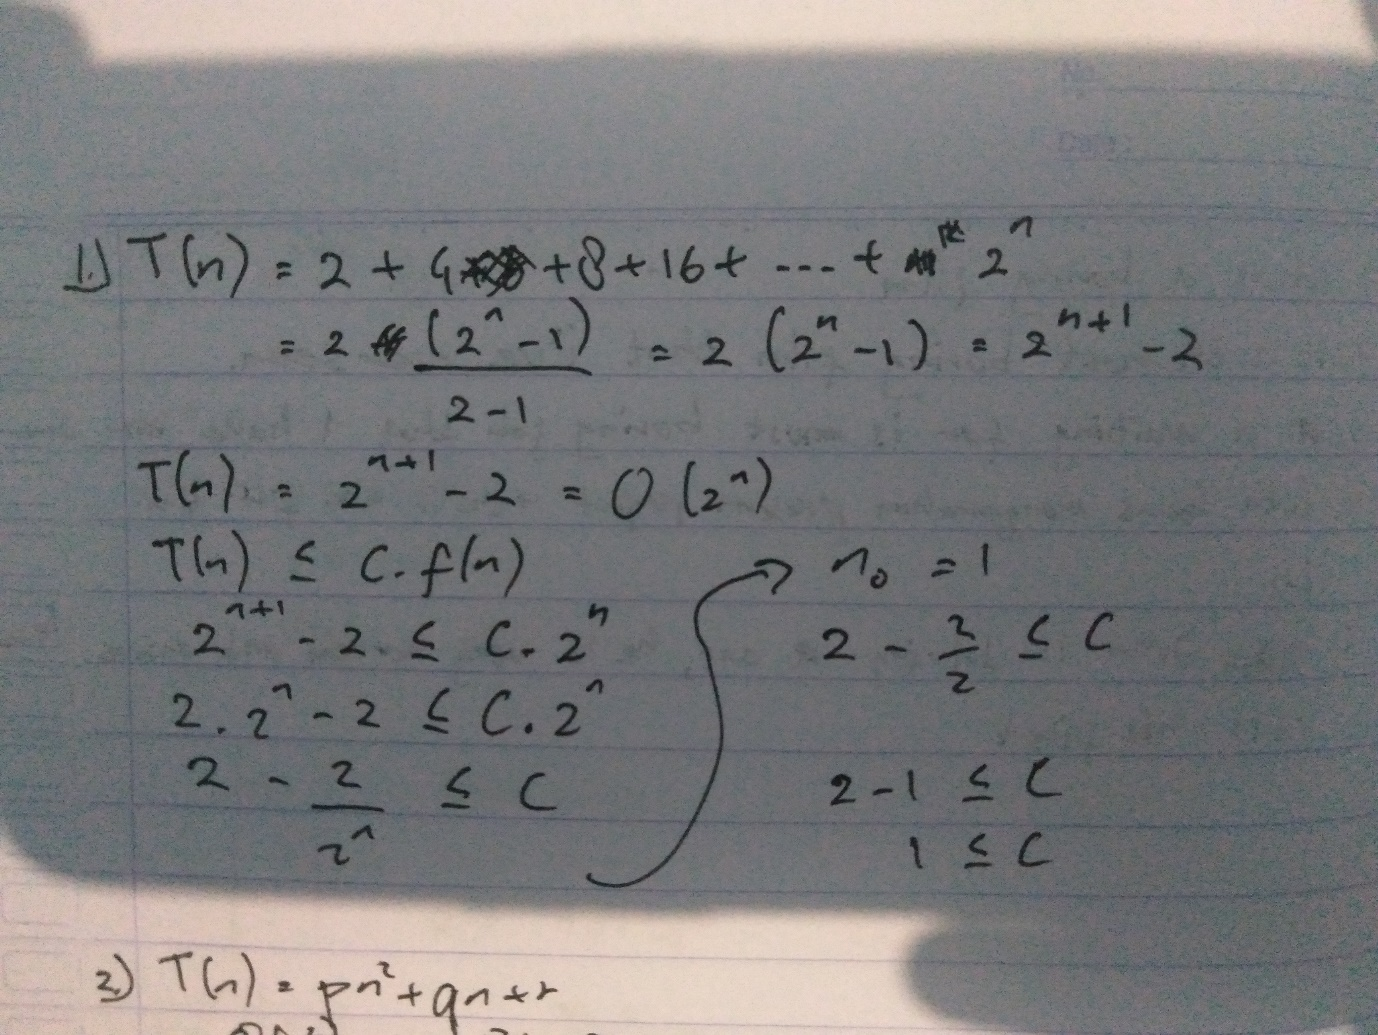 No.
Date
1.) T(n) = 2 + 4 + 8 + 16 + ... + 2^n
= 2 (2^n - 1) / 2 - 1 = 2 (2^n - 1) = 2^(n+1) - 2
T(n) = 2^(n+1) - 2 = O (2^n)
T(n) ≤ C. f(n)
2^(n+1) - 2 ≤ C. 2^n
2. 2^n - 2 ≤ C. 2^n
2 - 2/2^n ≤ C
n₀ = 1
2 - 2/2 ≤ C
2 - 1 ≤ C
1 ≤ C
2.) T(n) = pn² + qn + r